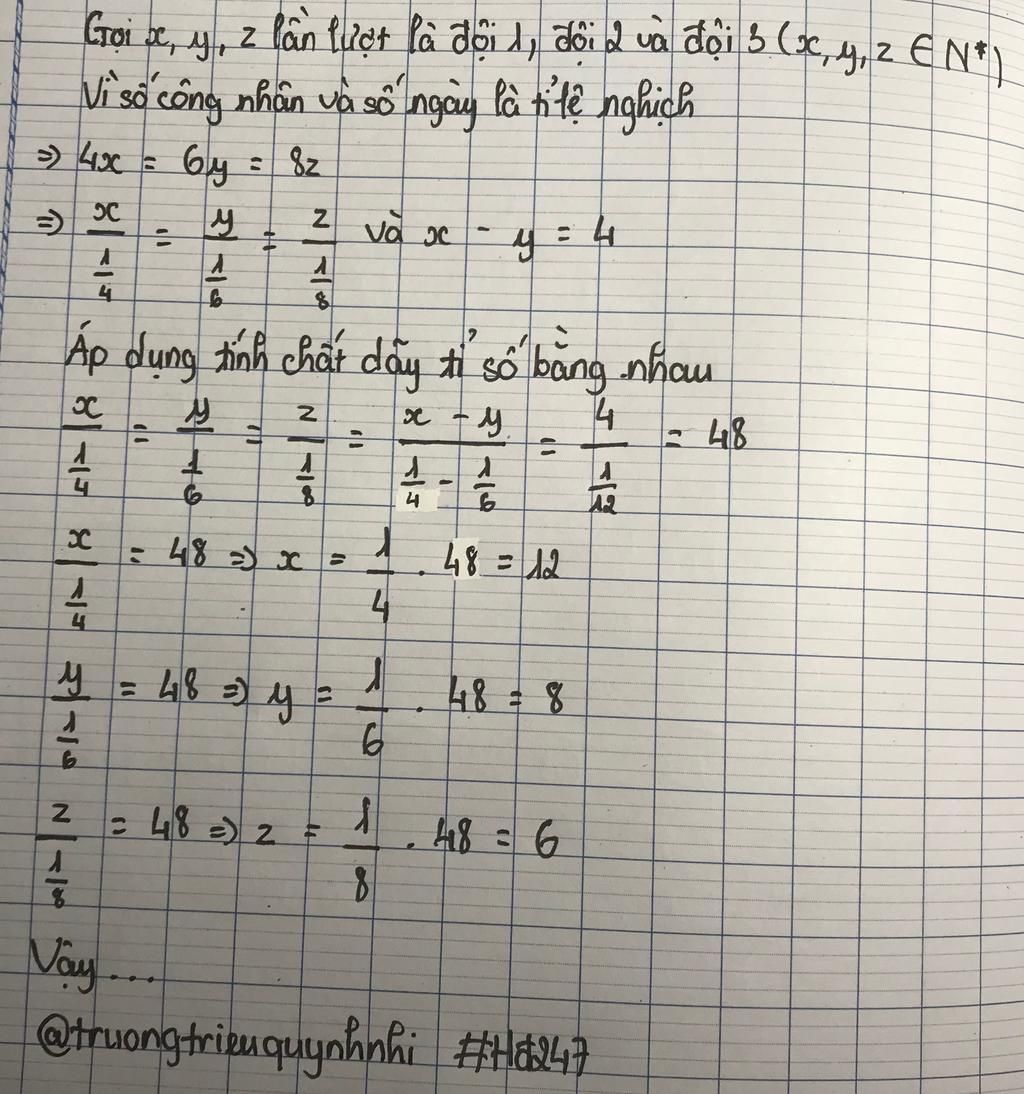 Gọi x, y, z lần lượt là đội 1, đội 2 và đội 3 (x, y, z ∈ N*)
Vì số công nhân và số ngày là tỉ lệ nghịch
⇒ 4x = 6y = 8z
⇒ x/(1/4) = y/(1/6) = z/(1/8) và x - y = 4
Áp dụng tính chất dãy tỉ số bằng nhau
x/(1/4) = y/(1/6) = z/(1/8) = (x - y)/(1/4 - 1/6) = 4/(1/12) = 48
x/(1/4) = 48 ⇒ x = 1/4 . 48 = 12
y/(1/6) = 48 ⇒ y = 1/6 . 48 = 8
z/(1/8) = 48 ⇒ z = 1/8 . 48 = 6
Vậy ....
@truongtrieuquynhnhi #Hd247